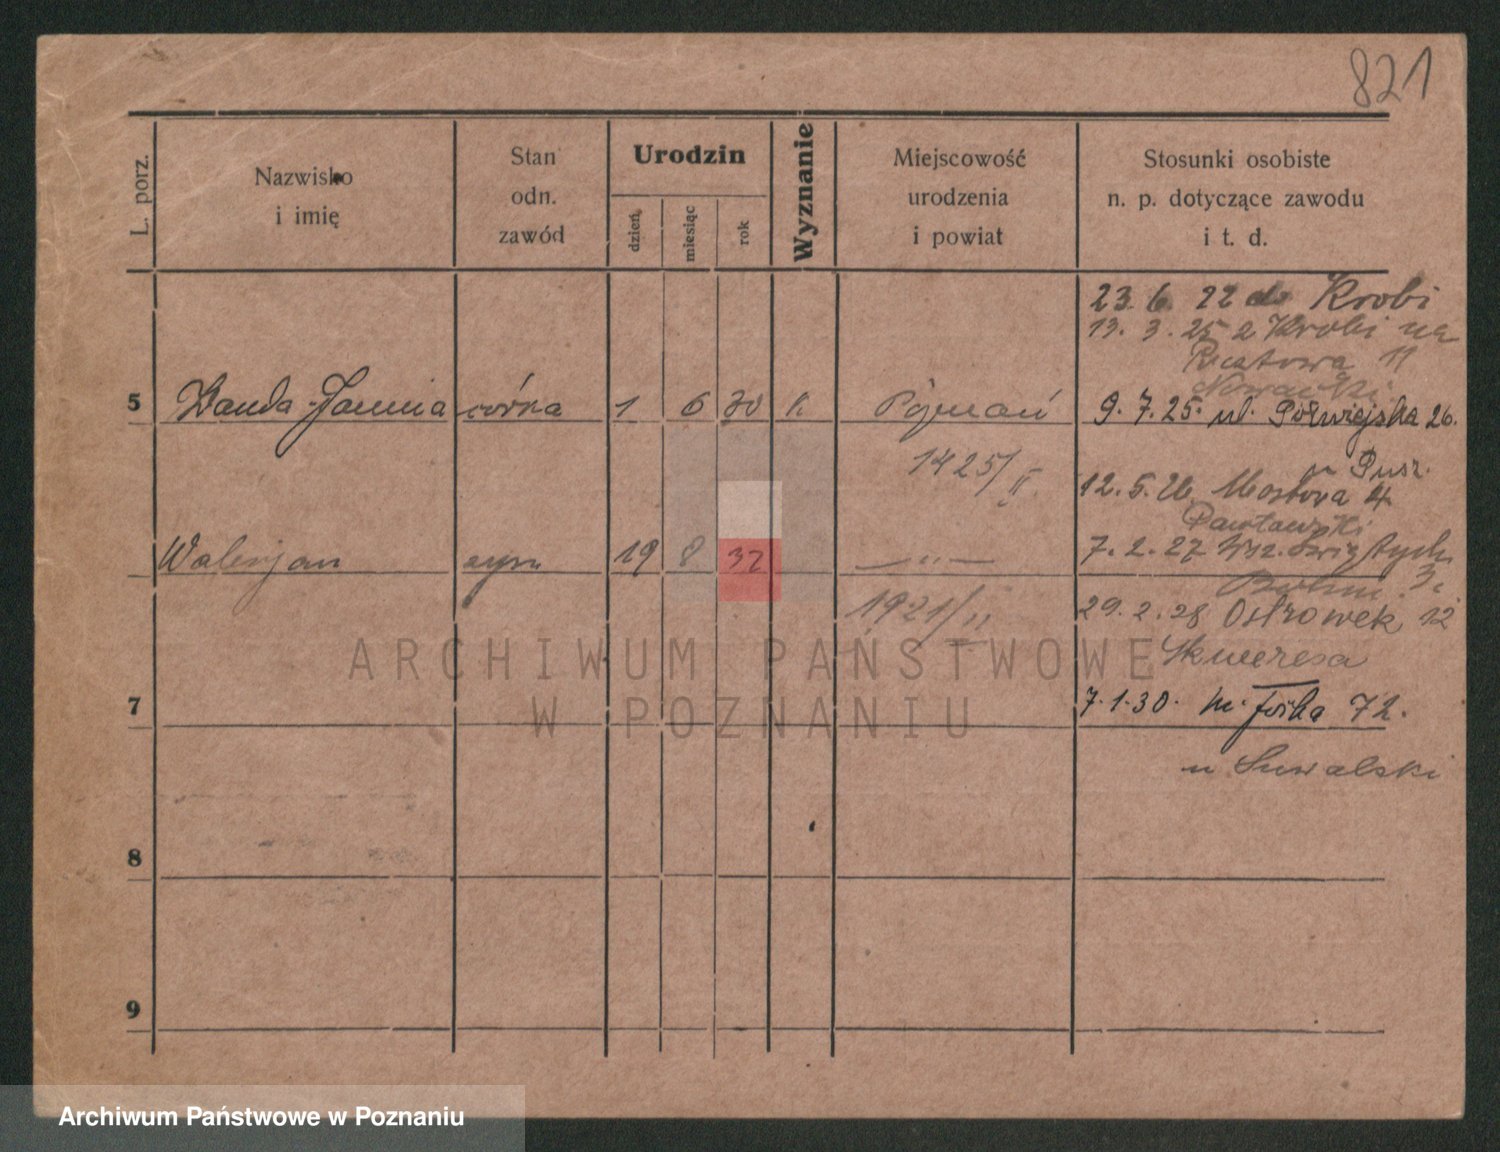 821
L. porz.
Nazwisko
i imię
Stan
odn.
zawód
Urodzin
dzień
miesiąc
rok
Wyznanie
Miejscowość
urodzenia
i powiat
Stosunki osobiste
n. p. dotyczące zawodu
i t. d.
23. 6. 22 do Krobi
13. 3. 25 z Krobi na
11
5 Wanda-Janina córka 1 6 30 k. Poznań
9. 7. 25. ul. Półwiejska 26.
1425/II
12. 5. 26. Mostowa 4
Walerjan syn 19 8 32 — " —
7. 2. 27 Wsz. Świętych 3
1921/II
29. 2. 28 Ostrówek 12
7
7.1.30. 72.
u Suwalski
8
9
ARCHIWUM PAŃSTWOWE
W POZNANIU
Archiwum Państwowe w Poznaniu